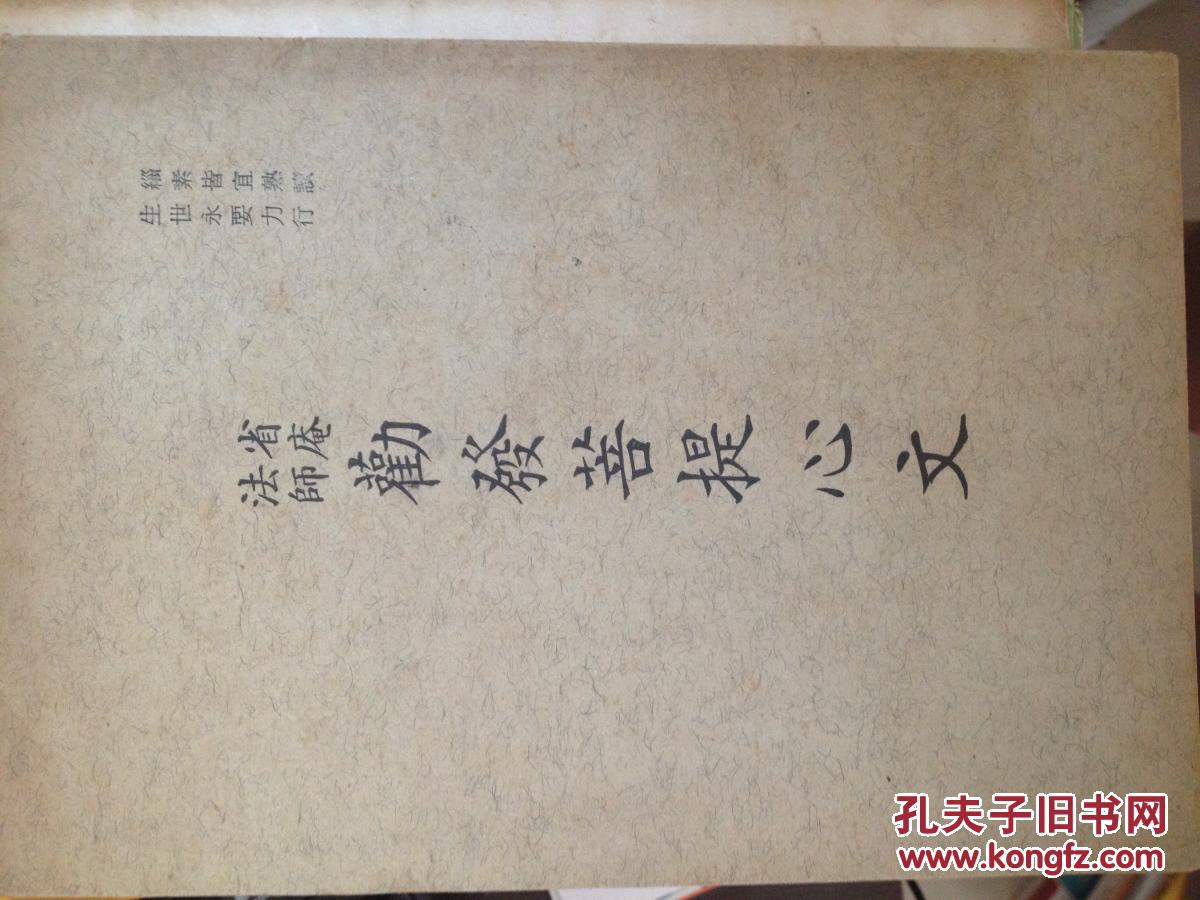 緇素皆宜熟讀
生世永要力行
省庵
法師
勸發菩提心文
孔夫子旧书网
www.kongfz.com